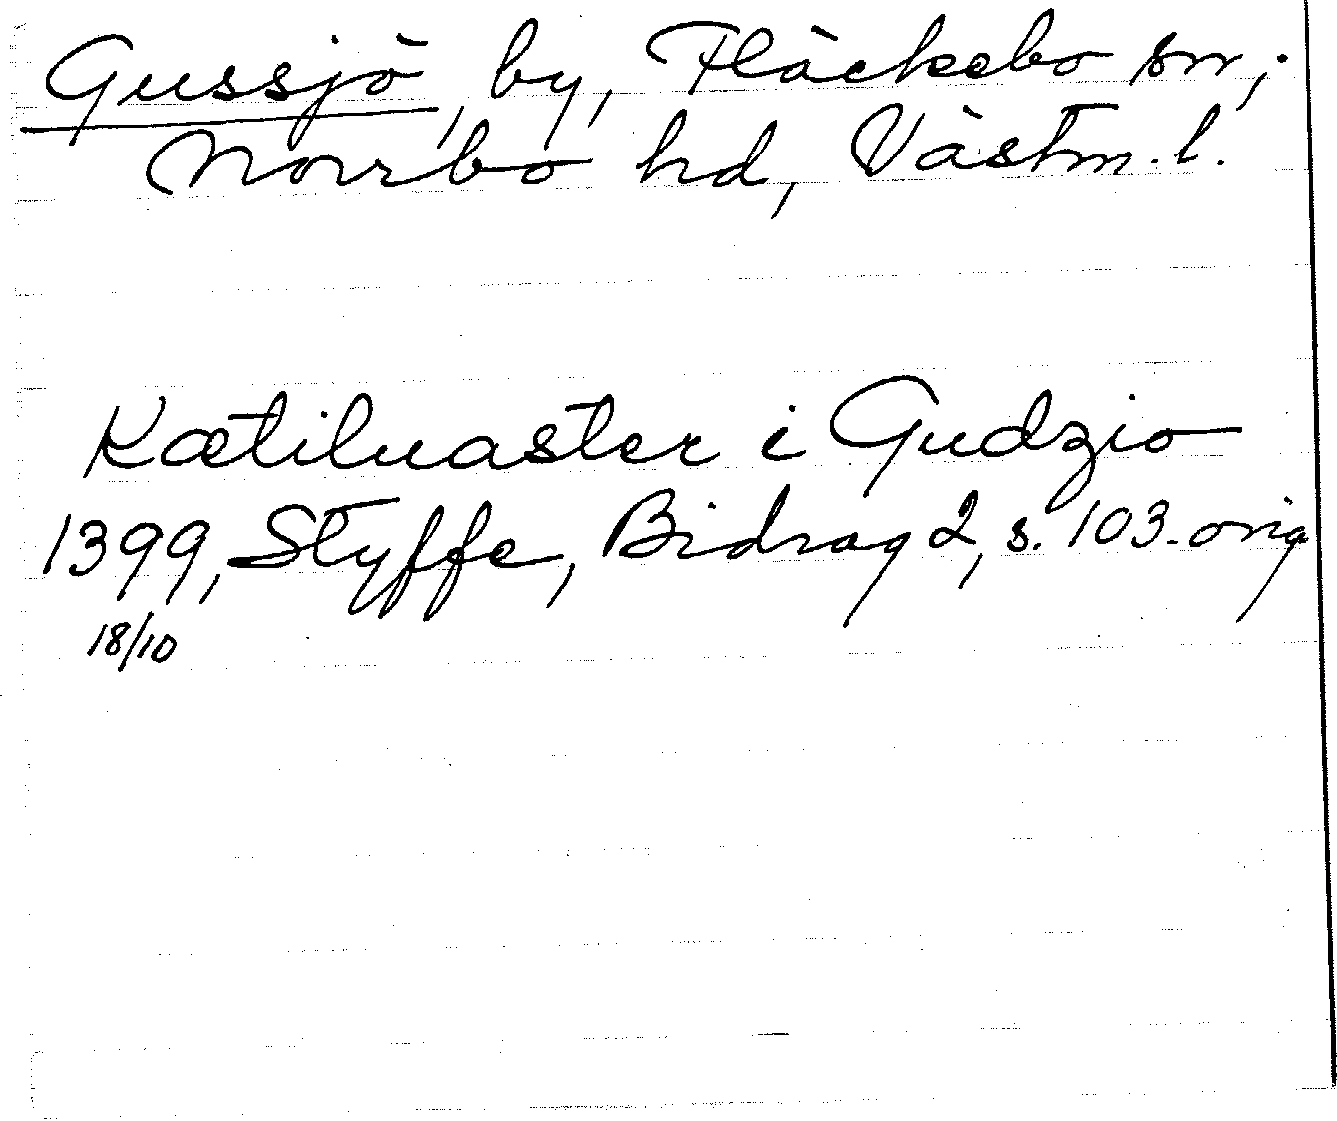 Gussjö, by, Fläckebo sn,
Norrbo hd, Västm. l.
Kætiluaster i Gudzio
1399, Styffe, Bidrag 2, s. 103. orig
18/10